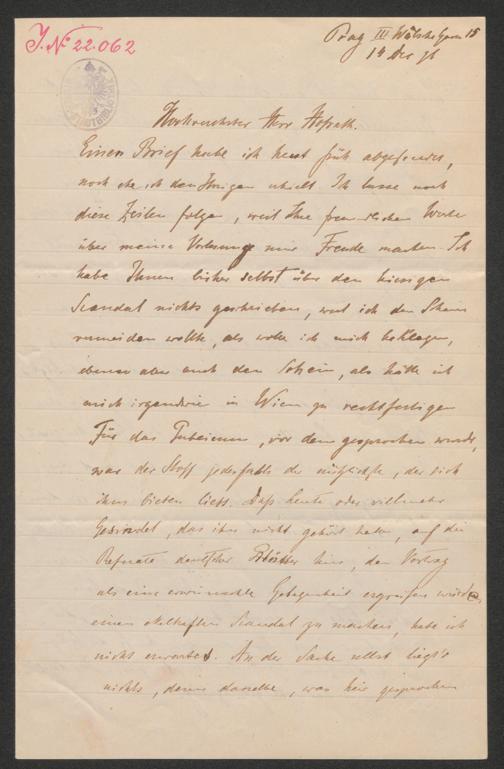 J. N° 22.062
Prag III
14 Dec
Hochverehrter Herr Hofrath.
Einen Brief habe ich heut früh abgesendet,
noch ehe ich den Ihrigen erhielt. Ich lasse noch
diese Zeilen folgen, weil Ihre freundlichen Worte
über meine Vorlesung mir Freude machen. Ich
habe Ihnen bisher selbst über den hiesigen
Scandal nichts geschrieben, weil ich den Schein
vermeiden wollte, als wolle ich mich beklagen,
ebenso aber auch den Schein, als hätte ich
mich irgendwie in Wien zu rechtfertigen
Für das Publicum, vor dem gesprochen wurde,
war der Stoff jedenfalls der nützlichste, der sich
ihm bieten liess. Dass heute oder vielmehr
Gesindel, das ihn nicht gehört hatte, auf die
Referate deutscher Blätter hin, den Vortrag
als eine erwünschte Gelegenheit ergreifen würde
einen ekelhaften Scandal zu machen, habe ich
nicht erwartet. An der Sache selbst liegt's
nichts, denn dasselbe, was hier gesprochen